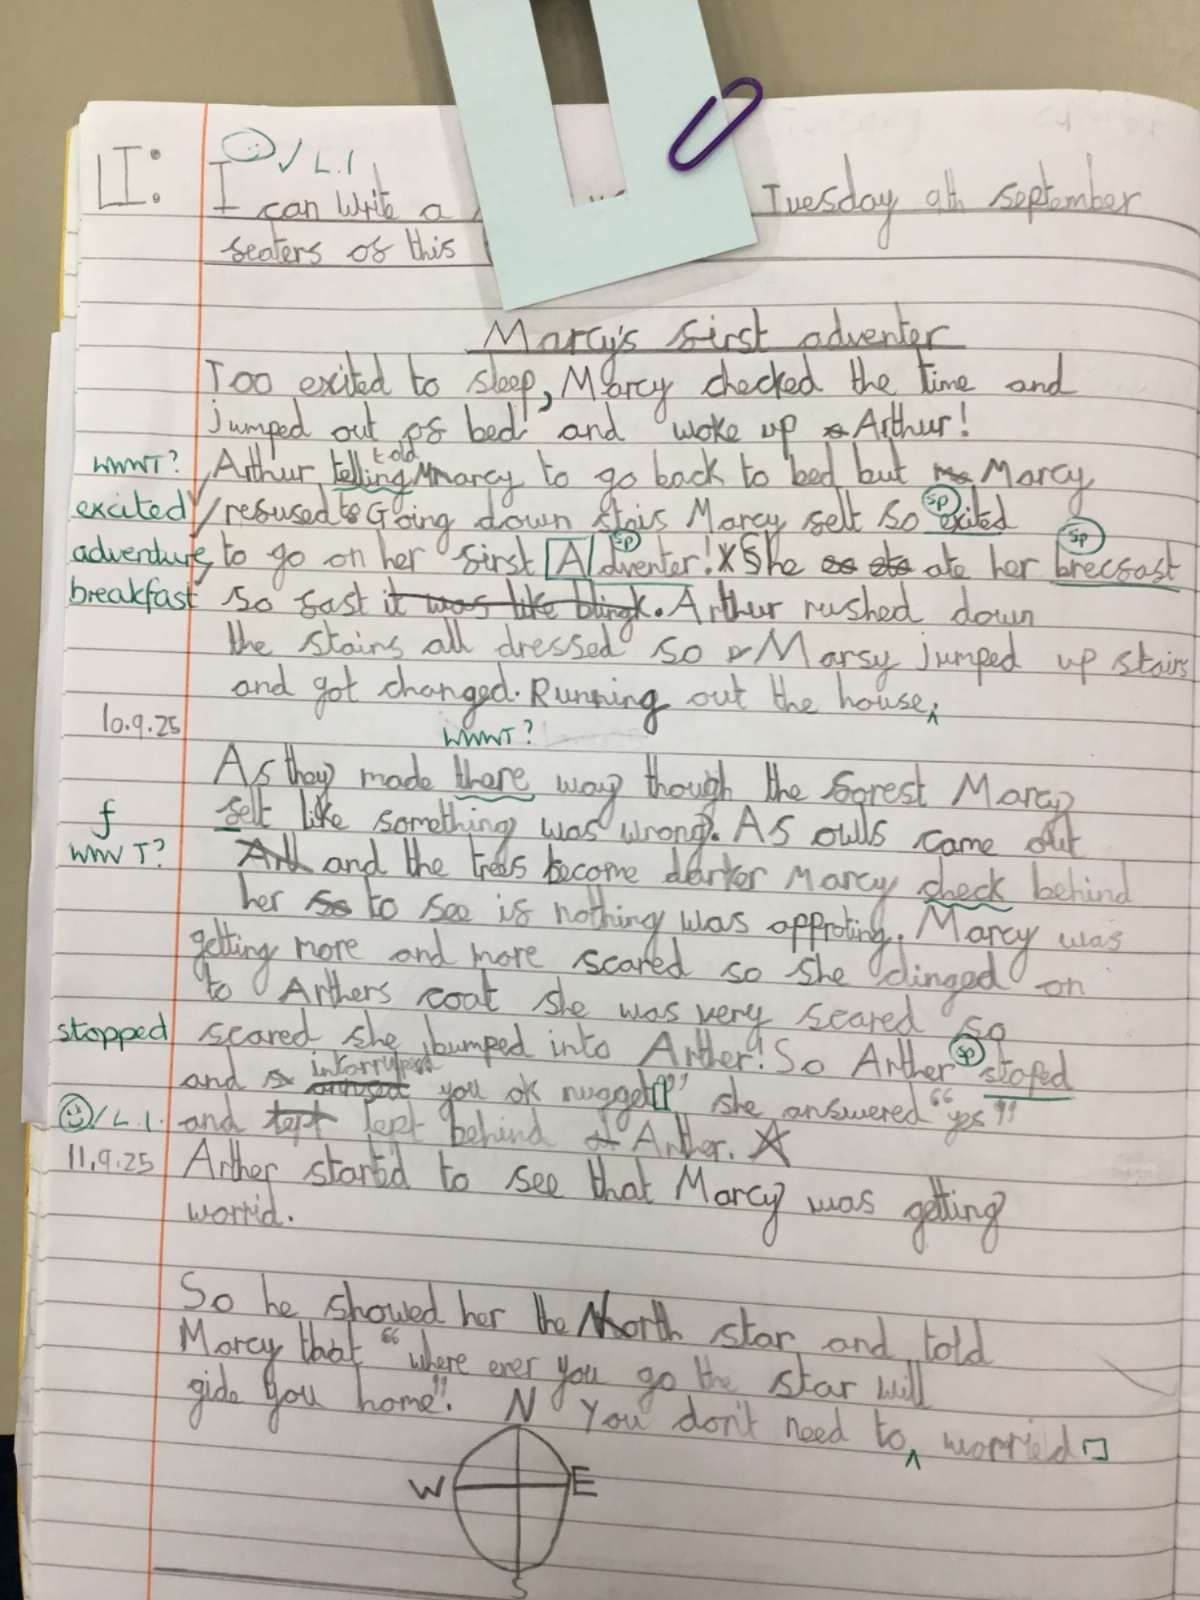 ☺ ✓ L.I
LI: I can write a Tuesday 9th september
featers of this
Marcy's first adventer
Too exited to sleep, Marcy checked the time and
jumped out of bed and woke up Arthur!
WWWT? Arthur telling told Marcy to go back to bed but Marcy
excited / refused to Going down stais Marcy felt so exited sp
adventure, to go on her first Adventer! sp She ate her brecfast sp
breakfast so fast it was like blingk. Arthur rushed down
the stairs all dressed so Marsy jumped up stairs
and got changed. Running out the house,
10.9.25
WWWT?
As they made there way though the forest Marcy
f felt like something was wrong. As owls came out
WWWT? and the trees become darker Marcy check behind
her so to see if nothing was approting. Marcy was
getting more and more scared so she clinged on
to Arthers coat she was very scared so
stopped scared she bumped into Arther! So Arther sp stoped
and you ok nugget" she answered "yes"
☺/L.I. and kept kept behind Arther.
11.9.25 Arther started to see that Marcy was getting
worrid.
So he showed her the North star and told
Marcy that "where ever you go the star will
gide you home". You don't need to worrield
N
W E
S